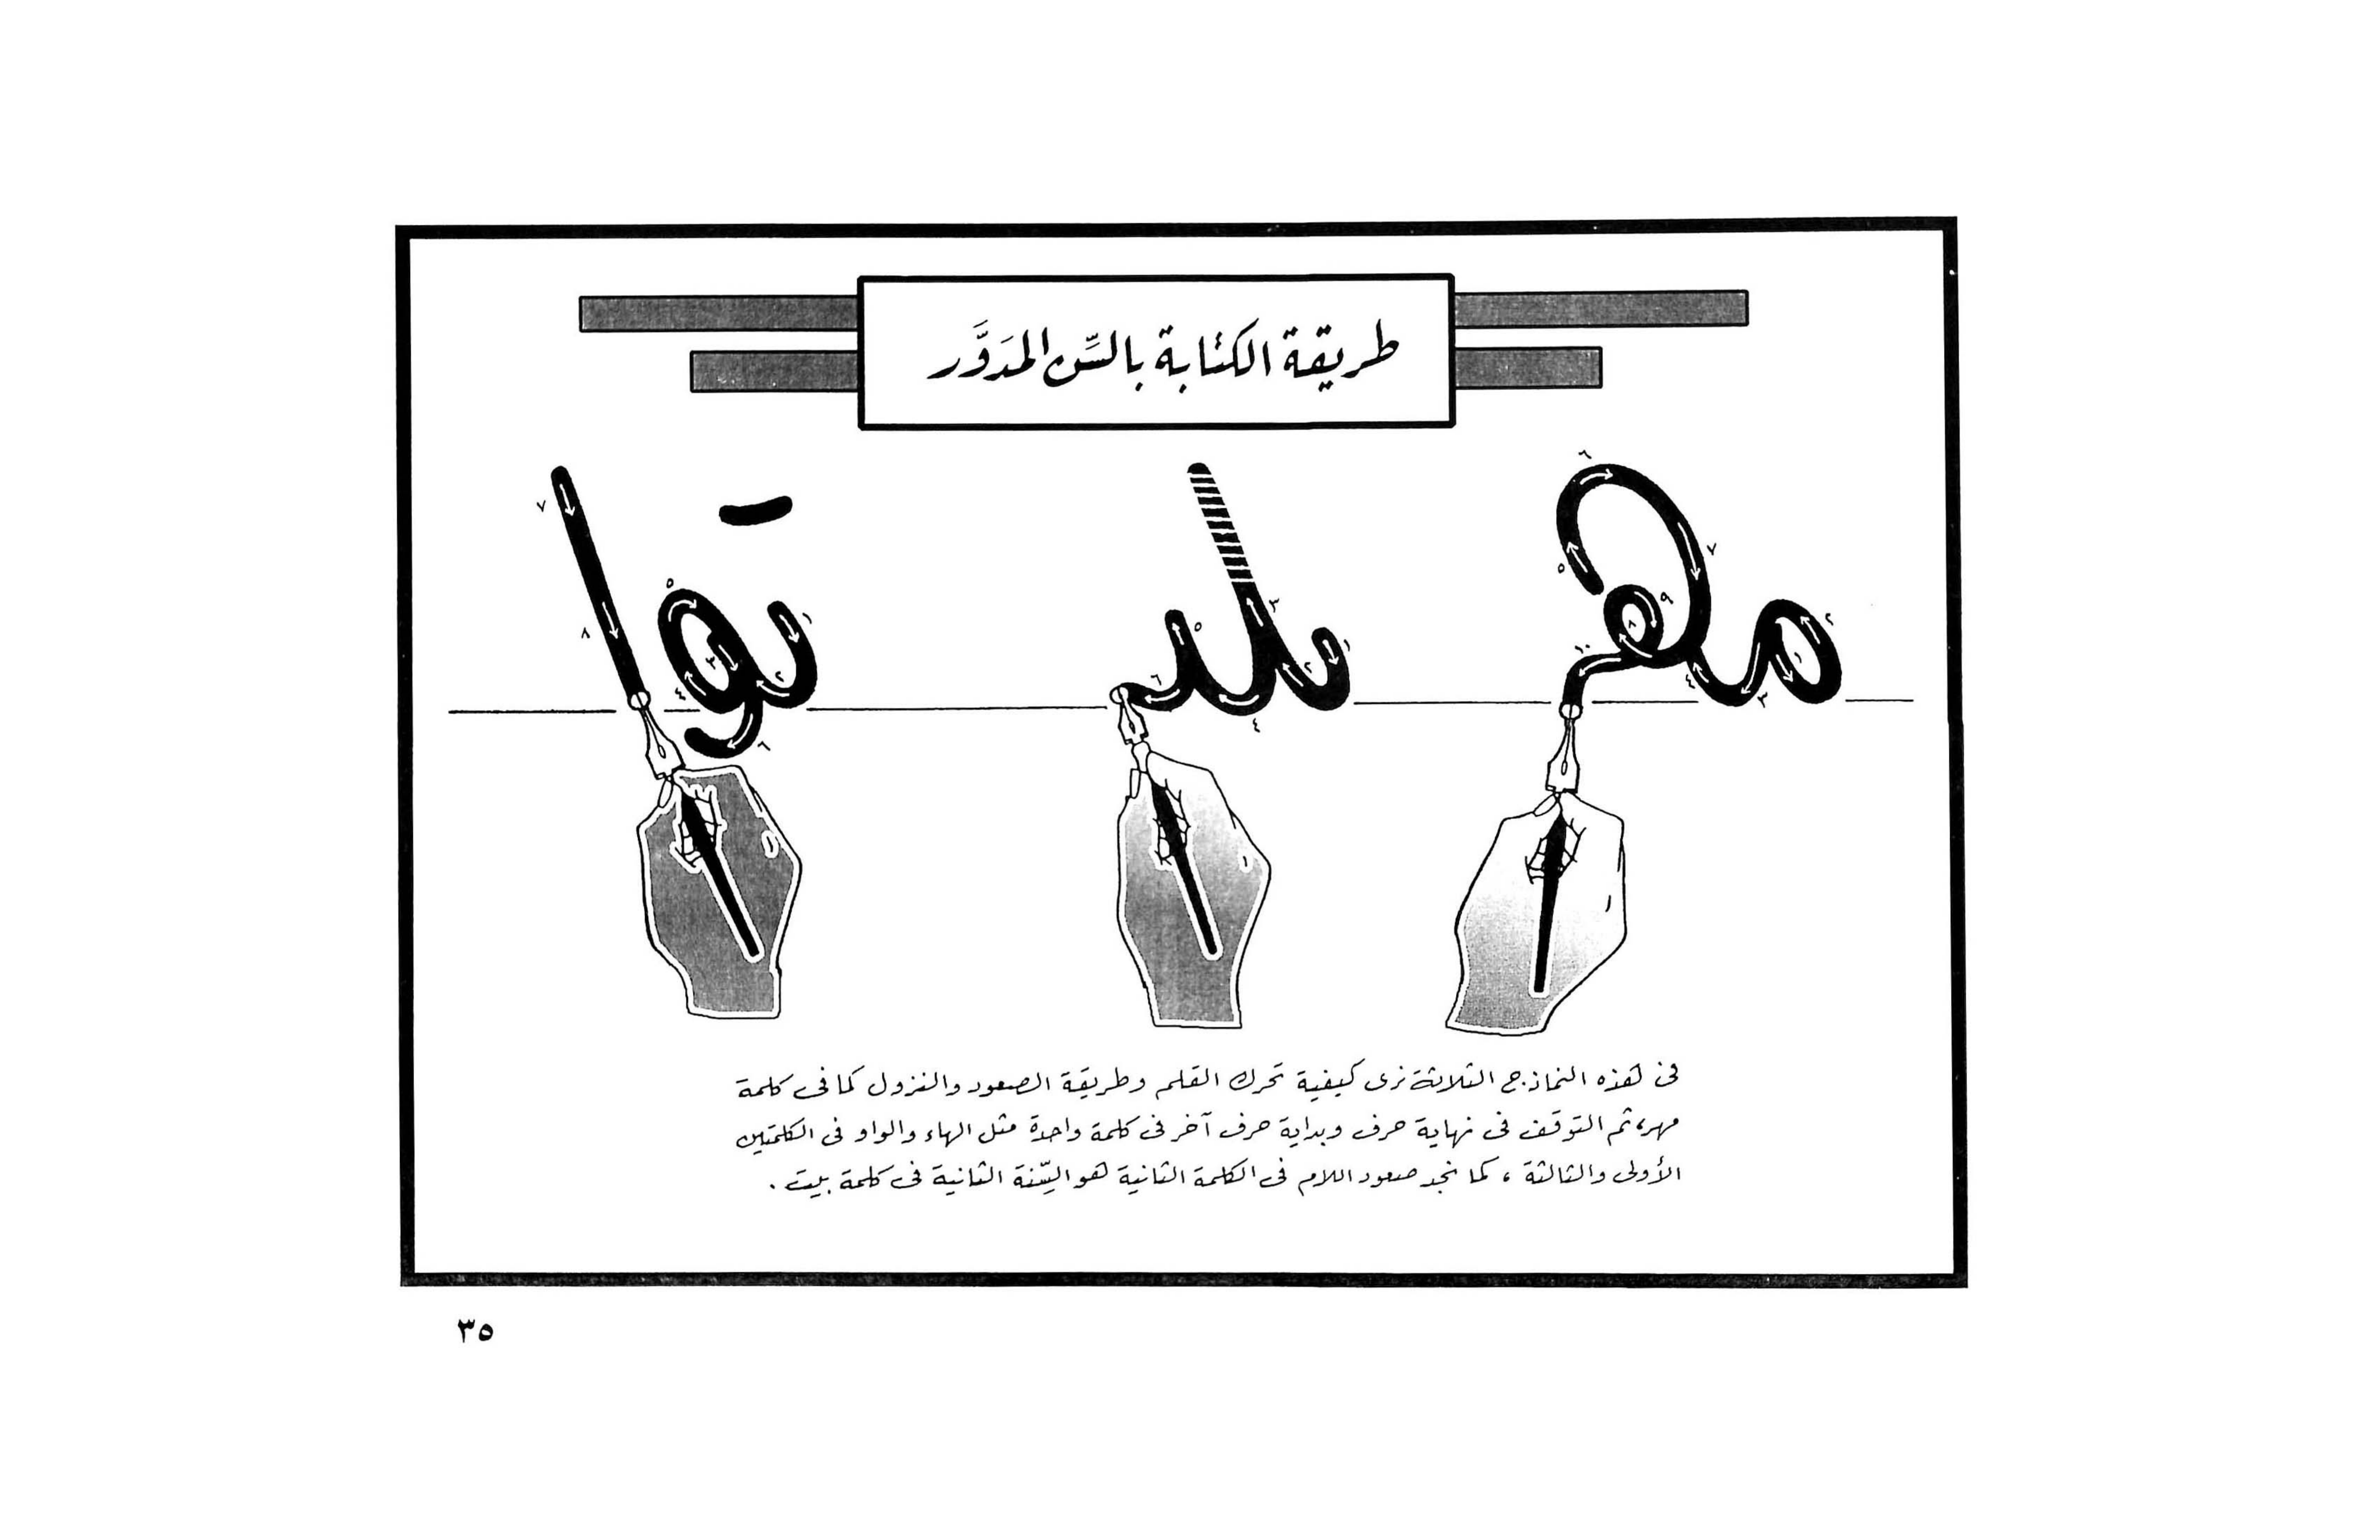 طريقة الكتابة بالسِّن المدَوَّر
فى هذه النماذج الثلاثة نرى كيفية تحرك القلم وطريقة الصعود والنزول كما فى كلمة
مهر، ثم التوقف فى نهاية حرف وبداية حرف آخر فى كلمة واحدة مثل الهاء والواو فى الكلمتين
الأولى والثالثة ، كما نجد صعود اللام فى الكلمة الثانية هو السِّنة الثانية فى كلمة بيت .
٣٥